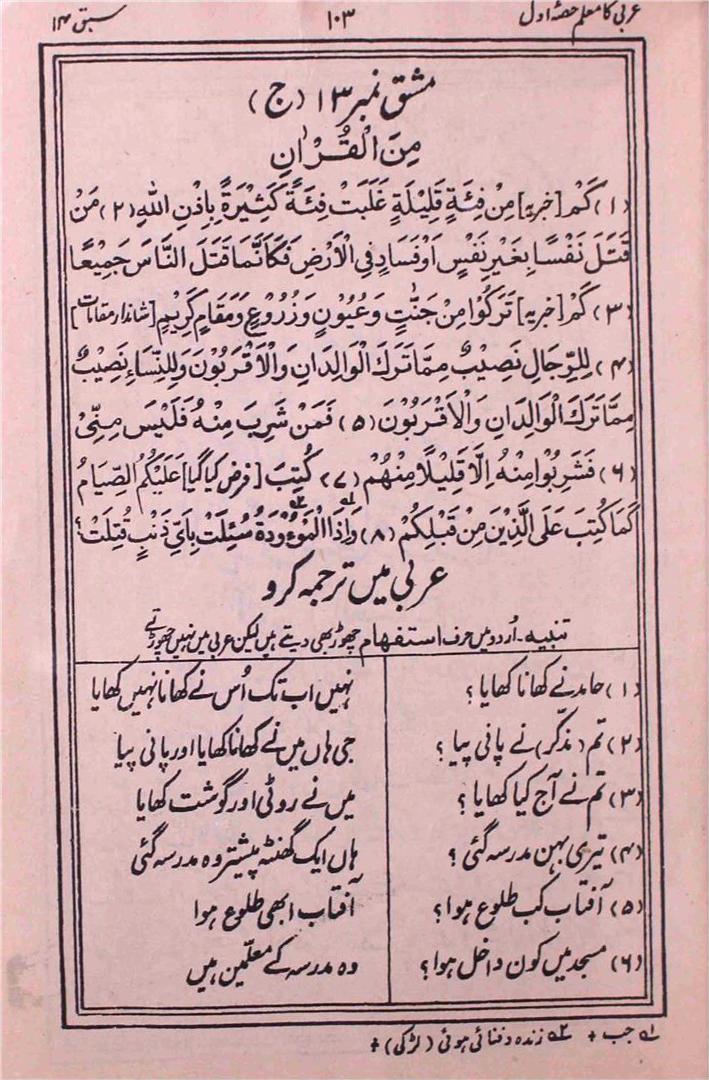 عربی کا معلم حصۂ اول ۱۰۳ سبق ۱۴
مشق نمبر ۱۳ (ج)
مِنَ الْقُرْاٰنِ
(۱) كَمْ [خبریہ] مِنْ فِئَةٍ قَلِيْلَةٍ غَلَبَتْ فِئَةً كَثِيْرَةً بِاِذْنِ اللهِ (۲) مَنْ
قَتَلَ نَفْسًا بِغَيْرِ نَفْسٍ اَوْ فَسَادٍ فِي الْاَرْضِ فَكَاَنَّمَا قَتَلَ النَّاسَ جَمِيْعًا
(۳) كَمْ [خبریہ] تَرَكُوْا مِنْ جَنّٰتٍ وَعُيُوْنٍ وَزُرُوْعٍ وَمَقَامٍ كَرِيْمٍ [شاندار مقامات]
(۴) لِلرِّجَالِ نَصِيْبٌ مِمَّا تَرَكَ الْوَالِدَانِ وَالْاَقْرَبُوْنَ وَلِلنِّسَاءِ نَصِيْبٌ
مِمَّا تَرَكَ الْوَالِدَانِ وَالْاَقْرَبُوْنَ (۵) فَمَنْ شَرِبَ مِنْهُ فَلَيْسَ مِنِّيْ
(۶) فَشَرِبُوْا مِنْهُ اِلَّا قَلِيْلًا مِنْهُمْ (۷) كُتِبَ [فرض کیا گیا] عَلَيْكُمُ الصِّيَامُ
كَمَا كُتِبَ عَلَى الَّذِيْنَ مِنْ قَبْلِكُمْ (۸) وَاِذَا ۱؎ الْمَوْءُوْدَةُ ۲؎ سُئِلَتْ بِاَيِّ ذَنْبٍ قُتِلَتْ؟
عربی میں ترجمہ کرو
تنبیہ - اُردو میں حرف استفہام چھوڑ بھی دیتے ہیں لیکن عربی میں نہیں چھوڑتے
(۱) حامد نے کھانا کھایا؟ نہیں اب تک اُس نے کھانا نہیں کھایا
(۲) تم (مذکر) نے پانی پیا؟ جی ہاں میں نے کھانا کھایا اور پانی پیا
(۳) تم نے آج کیا کھایا؟ میں نے روٹی اور گوشت کھایا
(۴) تیری بہن مدرسہ گئی؟ ہاں ایک گھنٹہ پیشتر وہ مدرسہ گئی
(۵) آفتاب کب طلوع ہوا؟ آفتاب ابھی طلوع ہوا
(۶) مسجد میں کون داخل ہوا؟ وہ مدرسہ کے معلّمین ہیں
۱؎ جب + ۲؎ زندہ دفنائی ہوئی (لڑکی) +